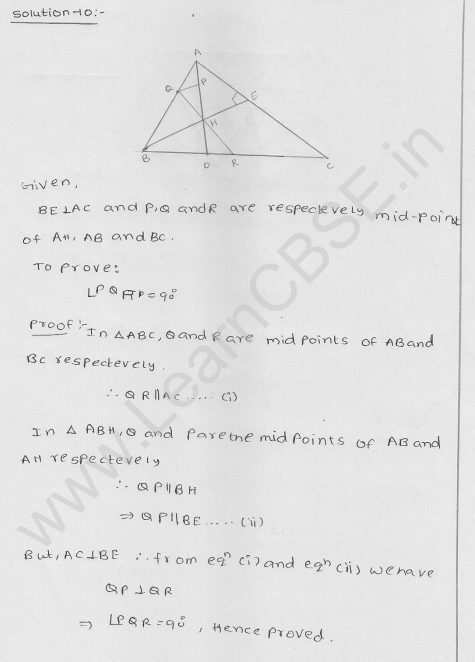 Solution-10:-
A
Q
P
E
H
B
D
R
C
Given,
BE⊥AC and P,Q and R are respectevely mid-point
of AH, AB and BC.
To prove:
∟PQ = 90°
Proof:- In △ABC, Q and R are mid points of AB and
BC respectevely.
∴ QR∥AC ..... (i)
In △ ABH, Q and P are the mid points of AB and
AH respectevely
∴ QP∥BH
⇒ QP∥BE ..... (ii)
But, AC⊥BE ∴ from eqⁿ (i) and eqⁿ (ii) we have
QP ⊥ QR
⇒ ∟PQR = 90°, Hence proved.
www.LearnCBSE.in